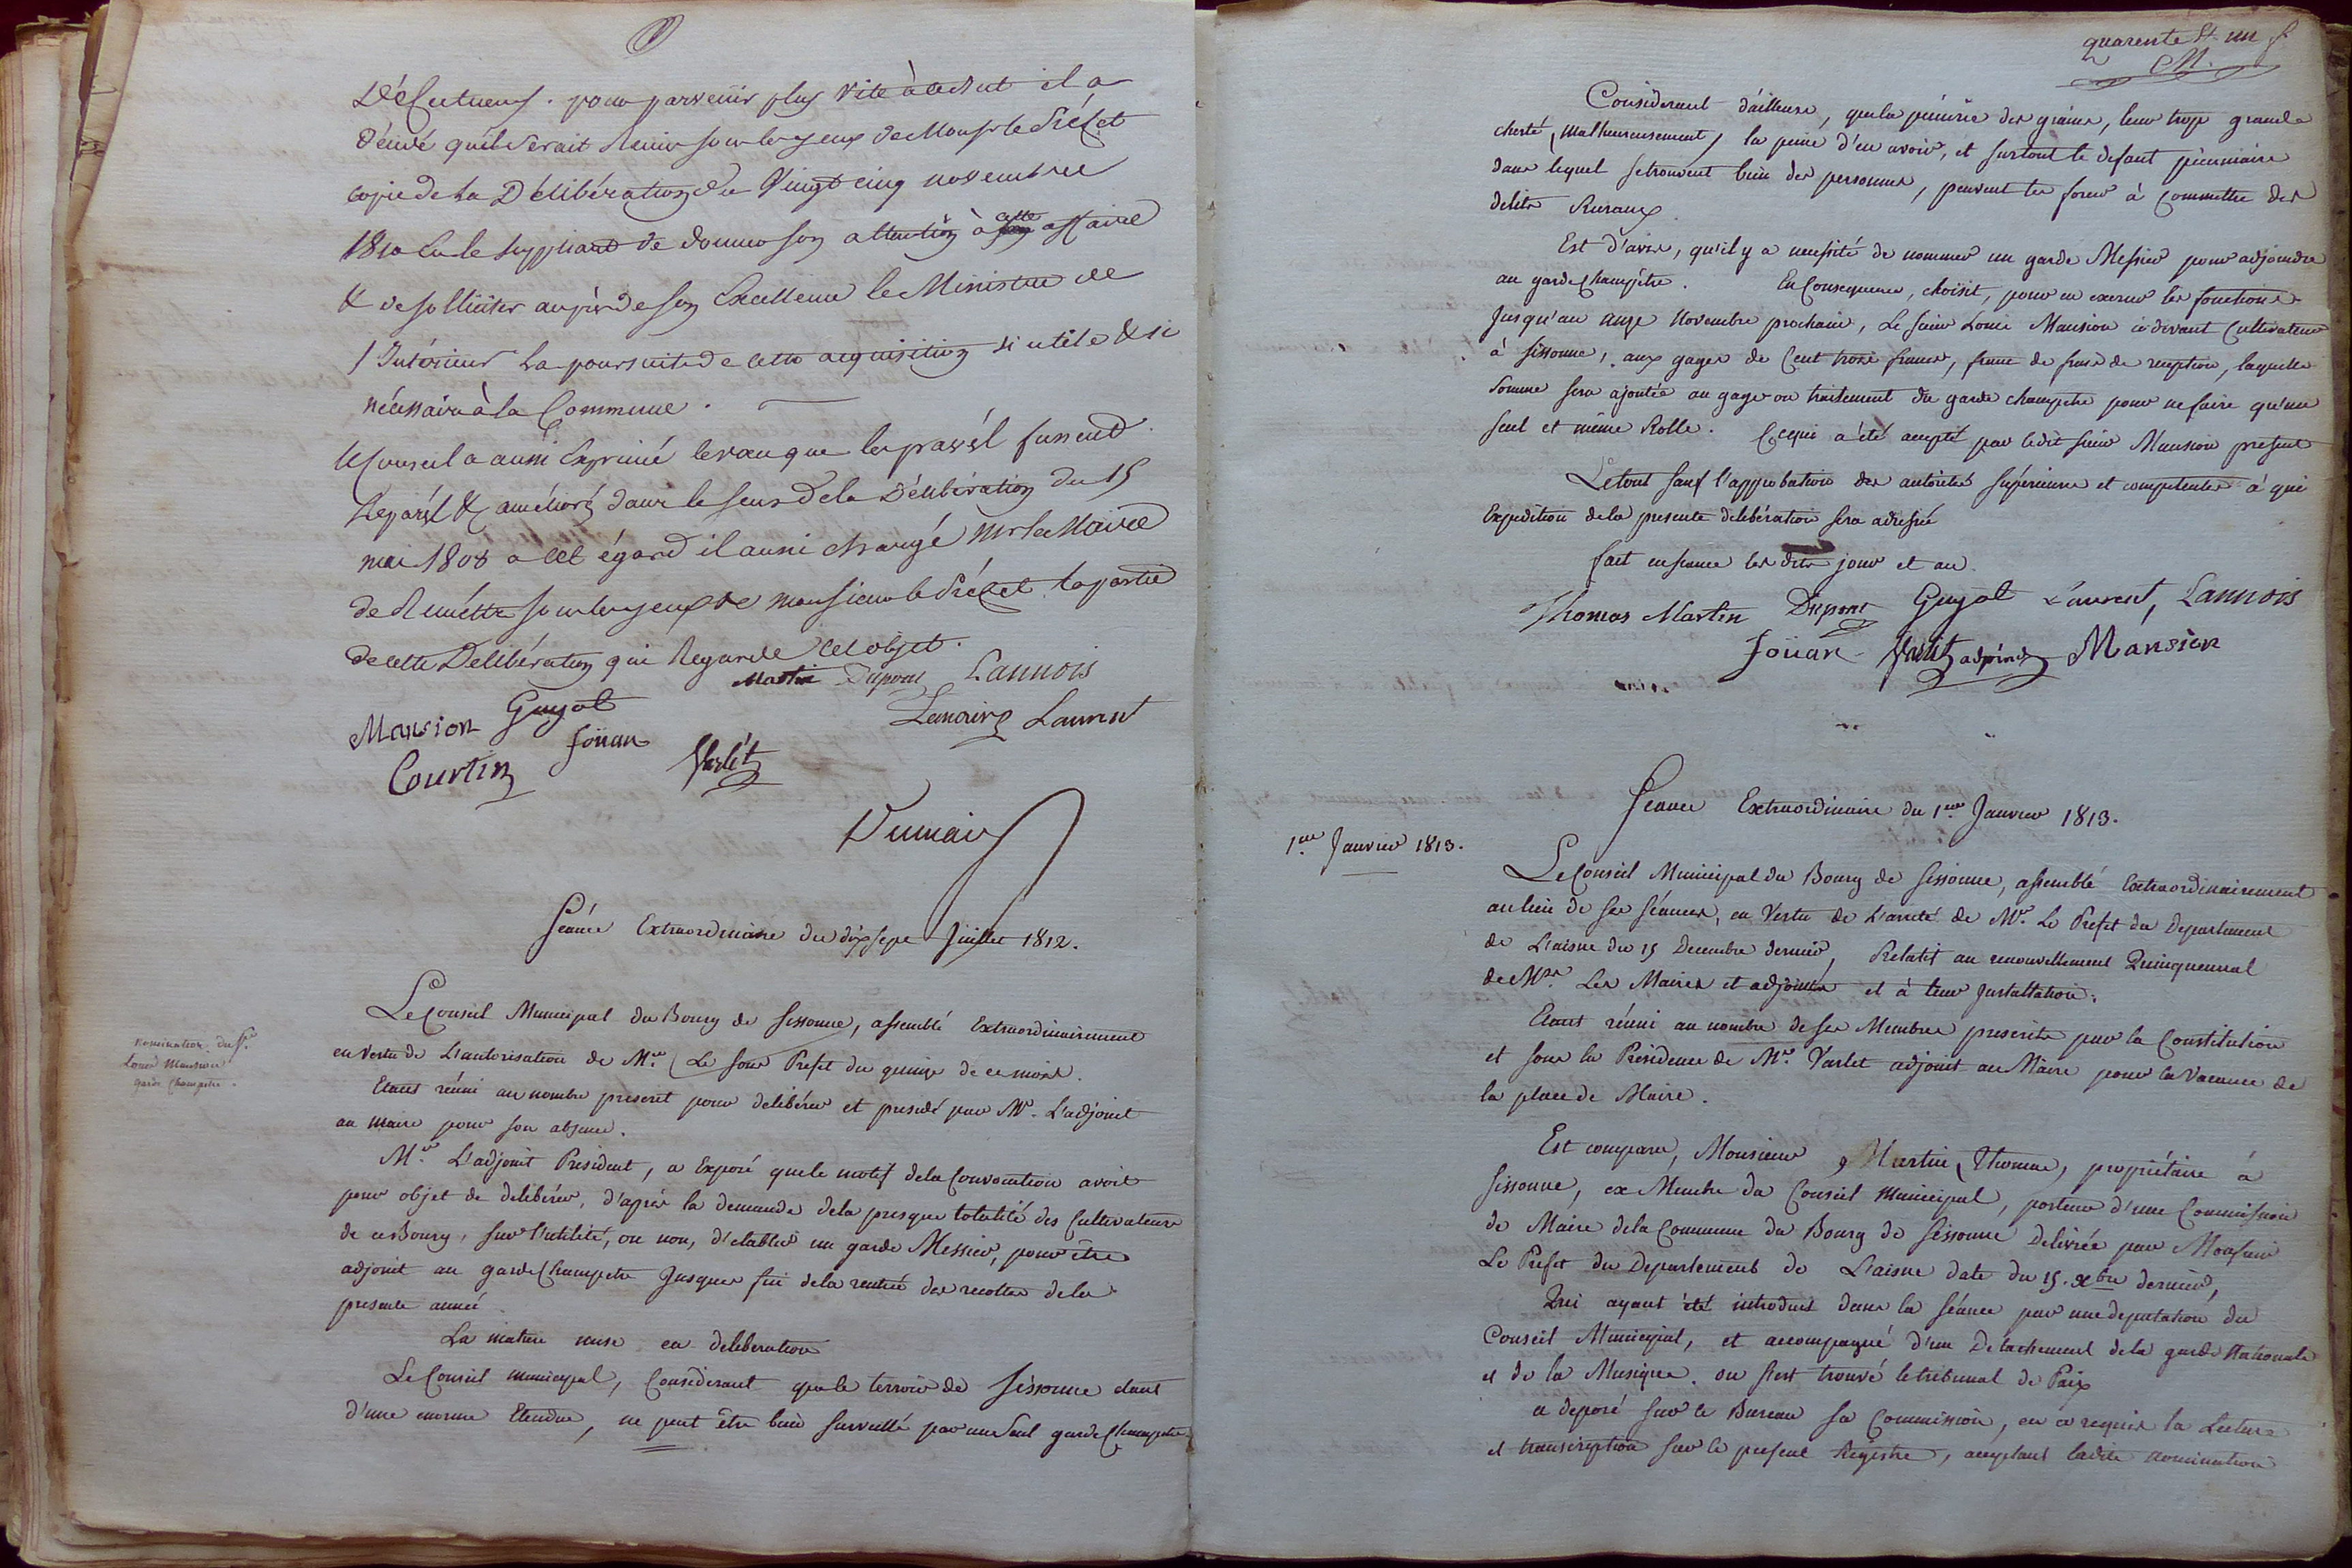 pour parvenir plus vite à ce but il a
désiré qu'il serait Remis sous les yeux de Monsr le Préfet
copie de la Délibération du Vingt cinq novembre
1810 en le Suppliant de donner son attention à cette affaire
& de solliciter auprès de son Excellence le Ministre de
l'Intérieur la poursuite de cette acquisition si utile & si
nécessaire à la Commune.
le Conseil a aussi Exprimé le vœu que les pavés fussent
Réparés & améliorés dans le sens de la Délibération du 15
mai 1808 a cet égard il a aussi chargé Mr le Maire
de Remettre sous les yeux de monsieur le Préfet la partie
de cette Délibération qui Regarde cet objet.
Martin Dupont Lannois
Mansion Guyot Lemoine Laurent
Courtin Joüan Varlét
Dumair
Séance Extraordinaire du dix sept Juillet 1812.
nomination du Sr.
Louis Mansion
garde Champetre.
Le Conseil Municipal du Bourg de Sissonne, assemblé Extraordinairement
en vertu de L'autorisation de Mr. Le sous Prefet du quinze de ce mois.
Etant réuni au nombre prescrit pour deliberer et presidé par Mr. L'adjoint
au Maire pour son absence.
Mr. L'adjoint President, a Exposé que le motif de la Convocation avoit
pour objet de deliberer, d'après la demande de la presque totalité des Cultivateurs
de ce Bourg, sur l'utilité, ou non, d'etablir un garde Messier, pour être
adjoint au garde Champetre Jusques fin de la rentrée des recoltes de la
presente année
La matiere mise en deliberation
Le Conseil municipal, Considerant que le terroir de Sissonne etant
d'une enorme Etendue, ne peut être bien surveillé par un seul garde Champetre
quarente Et un f.
Considerant d'ailleurs, que la pénurie des grains, leur trop grande
cherté, malheureusement, la peine d'en avoir, et surtout le defaut pécuniaire
dans lequel se trouvent bien des personnes, peuvent les forcer à Commettre des
delits Ruraux.
Est d'avis, qu'il y a necessité de nommer un garde Messier pour adjoindre
au garde Champêtre. En Consequence, choisit, pour en exercer les fonctions
Jusqu'au onze Novembre prochain, Le sieur Louis Mansion cidevant Cultivateur
à Sissonne, aux gages de Cent treize francs, franc de frais de reception, laquelle
Somme sera ajoutée au gage ou traitement du garde champetre pour ne faire qu'un
seul et même Rolle. Ce qui a été accepté par ledit sieur Mansion present
Le tout sauf l'approbation des autorités supérieures et competentes à qui
Expedition de la presente deliberation sera adressée
fait en seance les dits jour et an.
Thomas Martin Dupont Guyot Laurent, Lannois
Joüan Varlét adjoint Mansion
Seance Extraordinaire du 1er Janvier 1813.
1er Janvier 1813.
Le Conseil Municipal du Bourg de Sissonne, assemblé Extraordinairement
au lieu de ses séances, en Vertu de L'arreté de Mr. Le Prefet du Departement
de L'aisne du 15 Decembre dernier, Relatif au renouvellement Quinquennal
de Mrs. Les Maires et adjoints et à leur Installation.
Etant réuni au nombre de ses Membres prescrits par la Constitution
et sous la Presidence de Mr. Varlet adjoint au Maire pour la Vacance de
la place de Maire.
Est comparu, Monsieur Martin, Thomas, propriétaire à
Sissonne, ex Membre du Conseil municipal, porteur d'une Commission
de Maire de la Commune du Bourg de Sissonne Delivrée par Monsieur
Le Prefet du Departement de L'aisne date du 15. Xbre dernier,
Qui ayant été introduit dans la séance par une deputation du
Conseil Municipal, et accompagné d'un Detachement de la garde Nationale
et de la Musique. ou s'est trouvé le tribunal de Paix
a deposé sur le Bureau sa Commission, en a requis la Lecture
et transcription sur le present Registre, acceptant ladite nomination